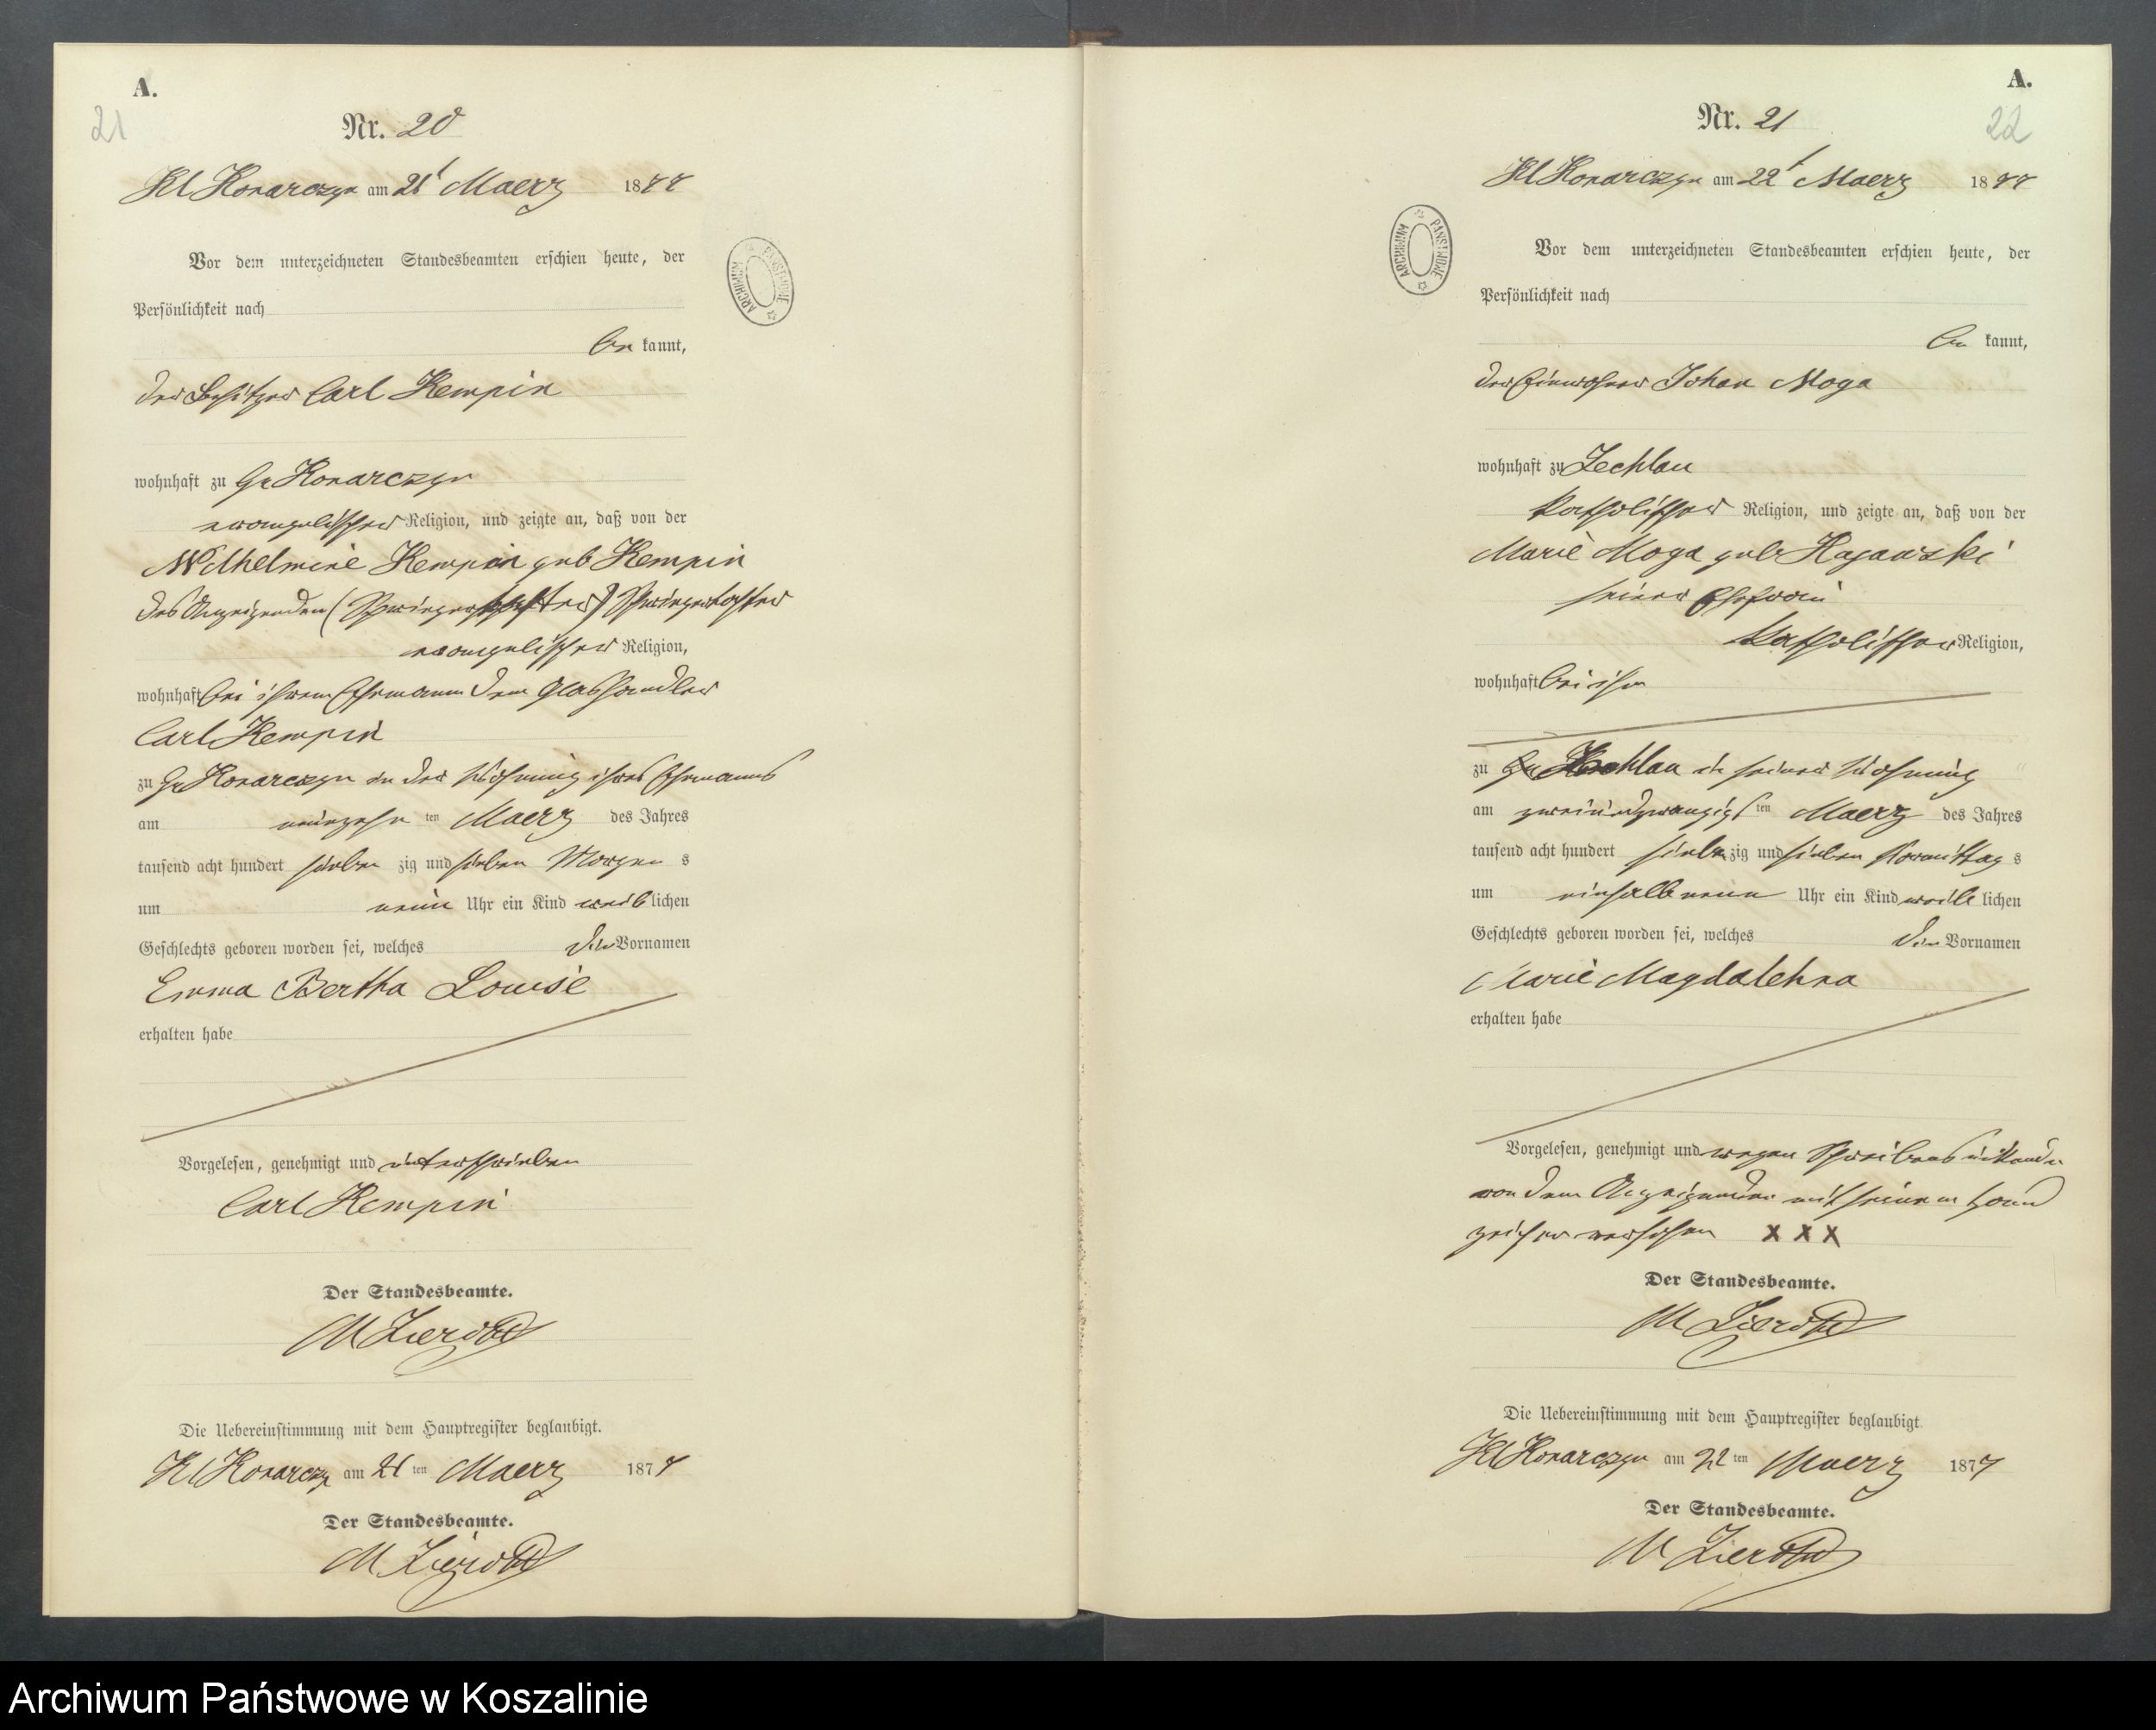 A.
21
Nr. 20
Kl Konarczyn am 21t Maerz 1877
ARCHIWUM PAŃSTWOWE
Vor dem unterzeichneten Standesbeamten erschien heute, der
Persönlichkeit nach
be kannt,
der Besitzer Carl Kempin
wohnhaft zu Gr Konarczyn
evangelischer Religion, und zeigte an, daß von der
Wilhelmine Kempin geb Kempin
des Anzeigenden ( ) Schwiegertochter
evangelischer Religion,
wohnhaft bei ihrem Ehemann dem Glashändler
Carl Kempin
zu Gr Konarczyn in der Wohnung ihres Ehemanns
am neunzehn ten Maerz des Jahres
tausend acht hundert sieben zig und sieben Morgen s
um neun Uhr ein Kind weib lichen
Geschlechts geboren worden sei, welches die Vornamen
Emma Bertha Louise
erhalten habe
Vorgelesen, genehmigt und unterschrieben
Carl Kempin
Der Standesbeamte.
Die Uebereinstimmung mit dem Hauptregister beglaubigt.
Kl Konarczyn am 21 ten Maerz 1877
Der Standesbeamte.
A.
22
Nr. 21
Kl Konarczyn am 22t Maerz 1877
ARCHIWUM PAŃSTWOWE
Vor dem unterzeichneten Standesbeamten erschien heute, der
Persönlichkeit nach
be kannt,
der Einwohner Johan Moga
wohnhaft zu Zechlau
katholischer Religion, und zeigte an, daß von der
Marie Moga geb
seiner Ehefrau
katholischer Religion,
wohnhaft bei ihm
zu Zechlau in seiner Wohnung
am zweiundzwanzigs ten Maerz des Jahres
tausend acht hundert sieben zig und sieben Vormittag s
um einhalb neun Uhr ein Kind weib lichen
Geschlechts geboren worden sei, welches die Vornamen
Marie Magdalehna
erhalten habe
Vorgelesen, genehmigt und wegen Schreibensunkunde
von dem Anzeigenden mit seinem Hand
zeichen versehen X X X
Der Standesbeamte.
Die Uebereinstimmung mit dem Hauptregister beglaubigt
Kl Konarczyn am 22 ten Maerz 1877
Der Standesbeamte.
Archiwum Państwowe w Koszalinie